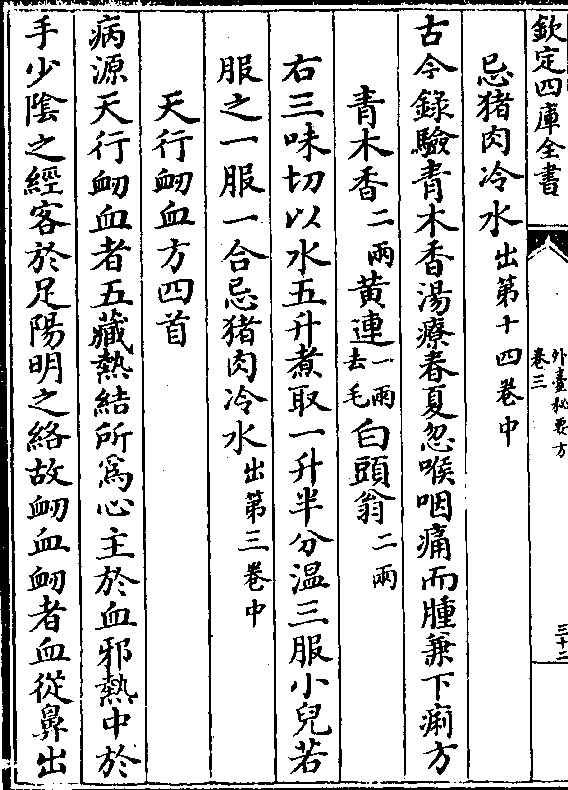 欽定四庫全書
外臺秘要方
卷三
三十二
忌猪肉冷水出第十四卷中
古今錄驗青木香湯療春夏忽喉咽痛而腫兼下痢方
青木香二兩黄連一兩去毛白頭翁二兩
右三味切以水五升煮取一升半分温三服小兒若
服之一服一合忌猪肉冷水出第三卷中
天行衂血方四首
病源天行衂血者五藏熱結所為心主於血邪熱中於
手少陰之經客於足陽明之絡故衂血衂者血從鼻出